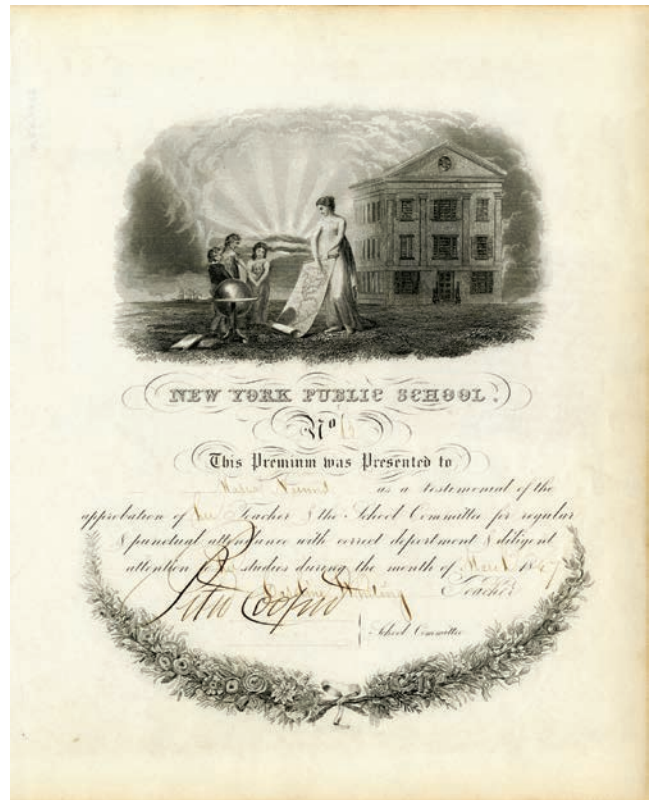 NEW YORK PUBLIC SCHOOL.
No 13
This Premium was Presented to
as a testimonial of the
approbation of her Teacher & the School Committee for regular
& punctual attendance with correct deportment & diligent
attention to her studies during the month of March 1847
Teacher
Peter Cooper
School Committee